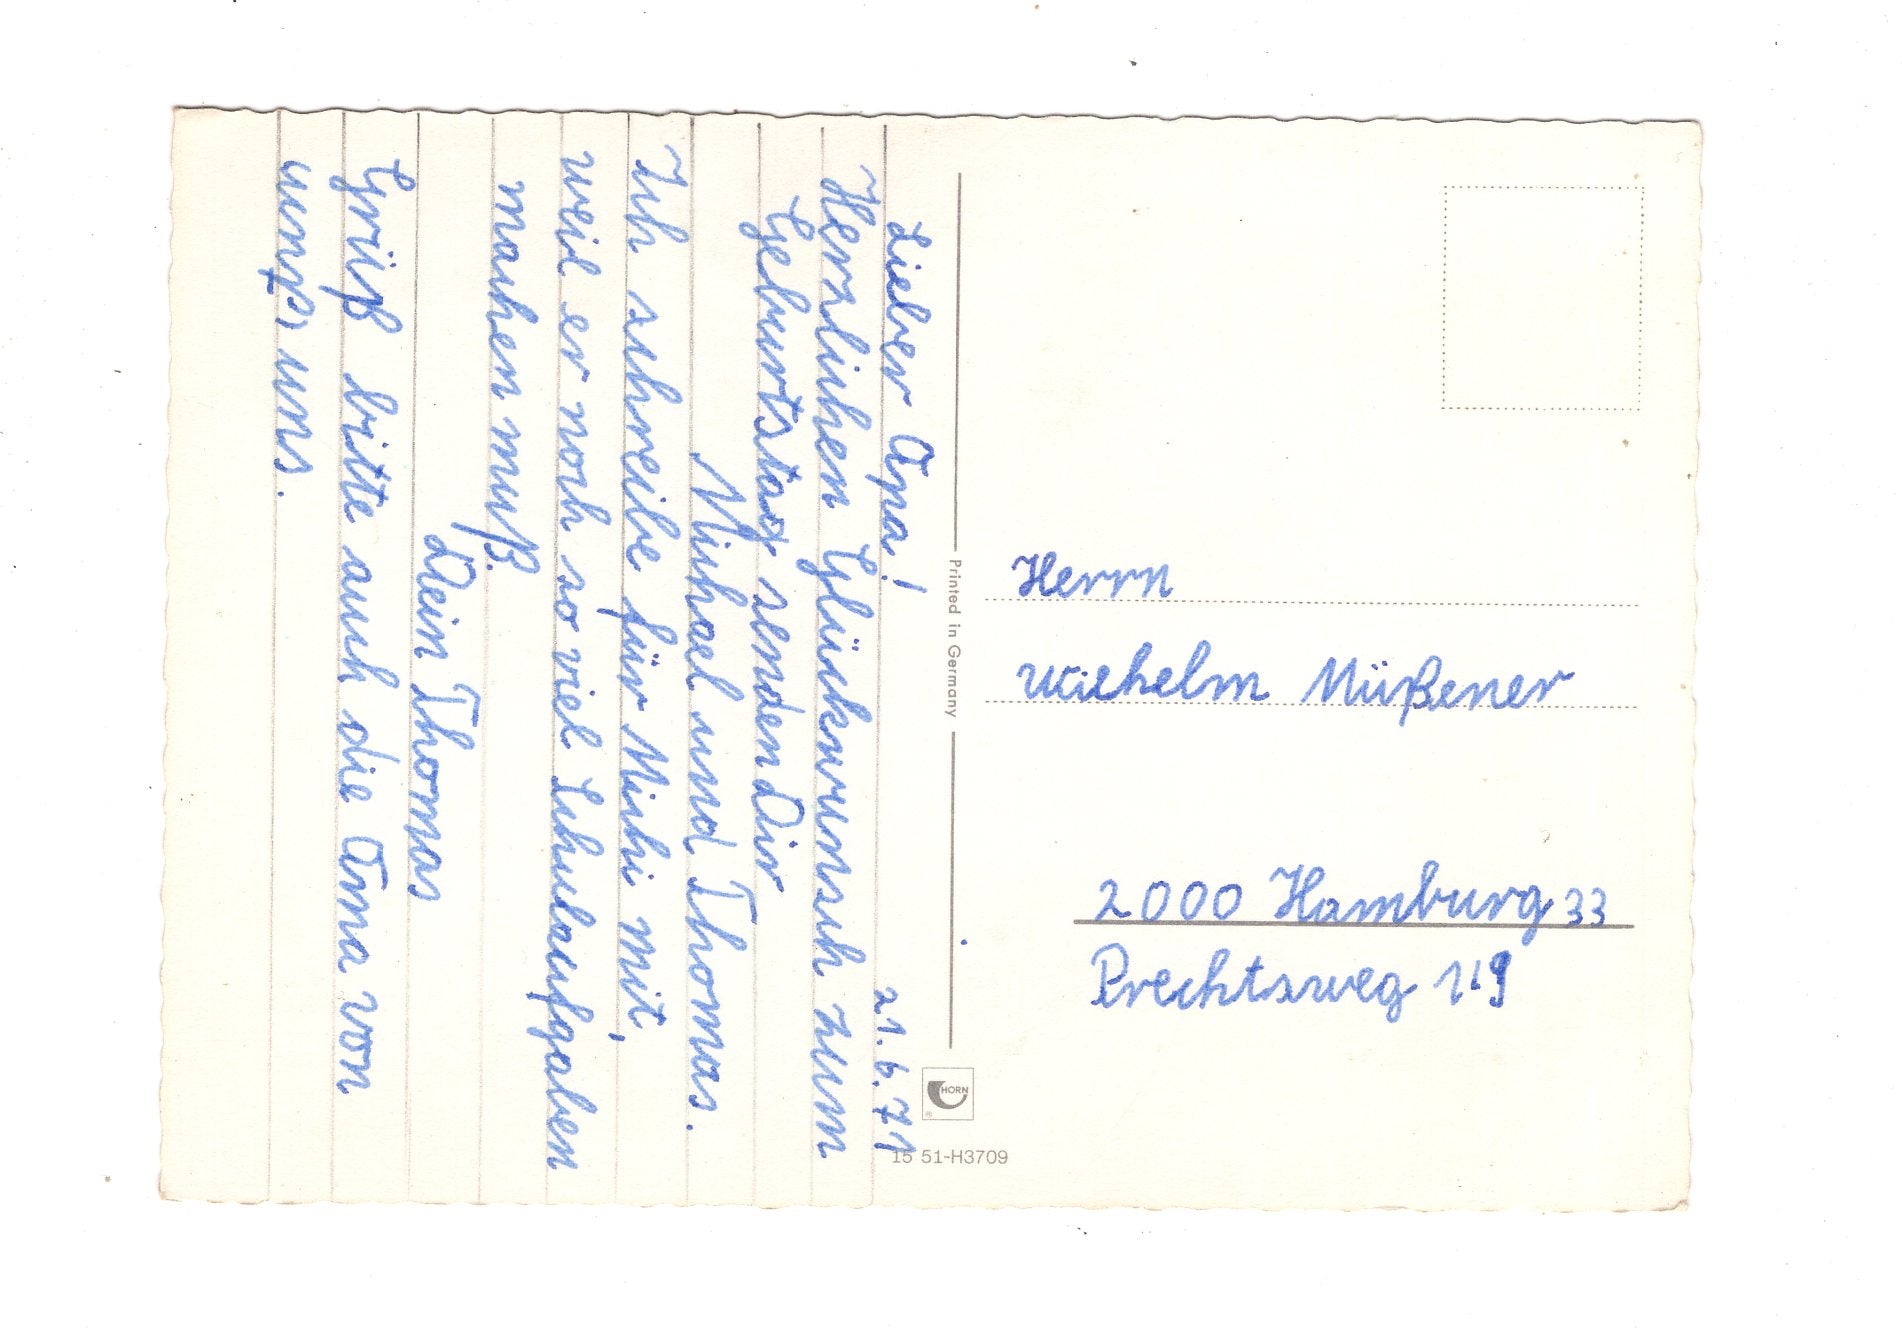 21.6.71
Lieber Opa!
Herzlichen Glückwunsch zum
Geburtstag senden Dir
Michael und Thomas.
Ich schreibe für Michi mit,
weil er noch so viel Schulaufgaben
machen muß.
Dein Thomas
Grüß bitte auch die Oma von
uns.
Printed in Germany
HORN
®
15 51-H3709
Herrn
Wilhelm Müßener
2000 Hamburg 33
Prechtsweg